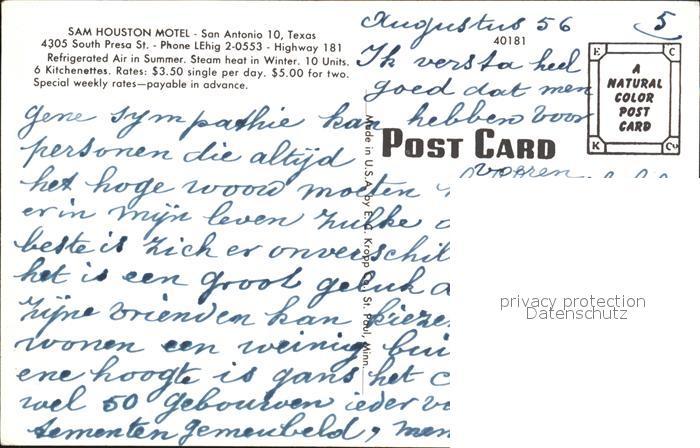 SAM HOUSTON MOTEL - San Antonio 10, Texas
4305 South Presa St. - Phone LEhig 2-0553 - Highway 181
Refrigerated Air in Summer. Steam heat in Winter. 10 Units.
6 Kitchenettes. Rates: $3.50 single per day. $5.00 for two.
Special weekly rates—payable in advance.
Augustus 56
5
40181
Ik versta heel
goed dat men
gene sympathie kan hebben voor
personen die altijd
het hoge woord moeten voeren
er in mijn leven zulke
beste is zich er onverschil
het is een groot geluk
zijne vrienden kan kieze
wonen een weinig bui
ene hoogte is gans het
wel 50 gebouwen ieder
tementen gemeubeld, men
POST CARD
E C
K Cu
A
NATURAL
COLOR
POST
CARD
Made in U.S.A. by E. C. Kropp Co., St. Paul, Minn.
privacy protection
Datenschutz